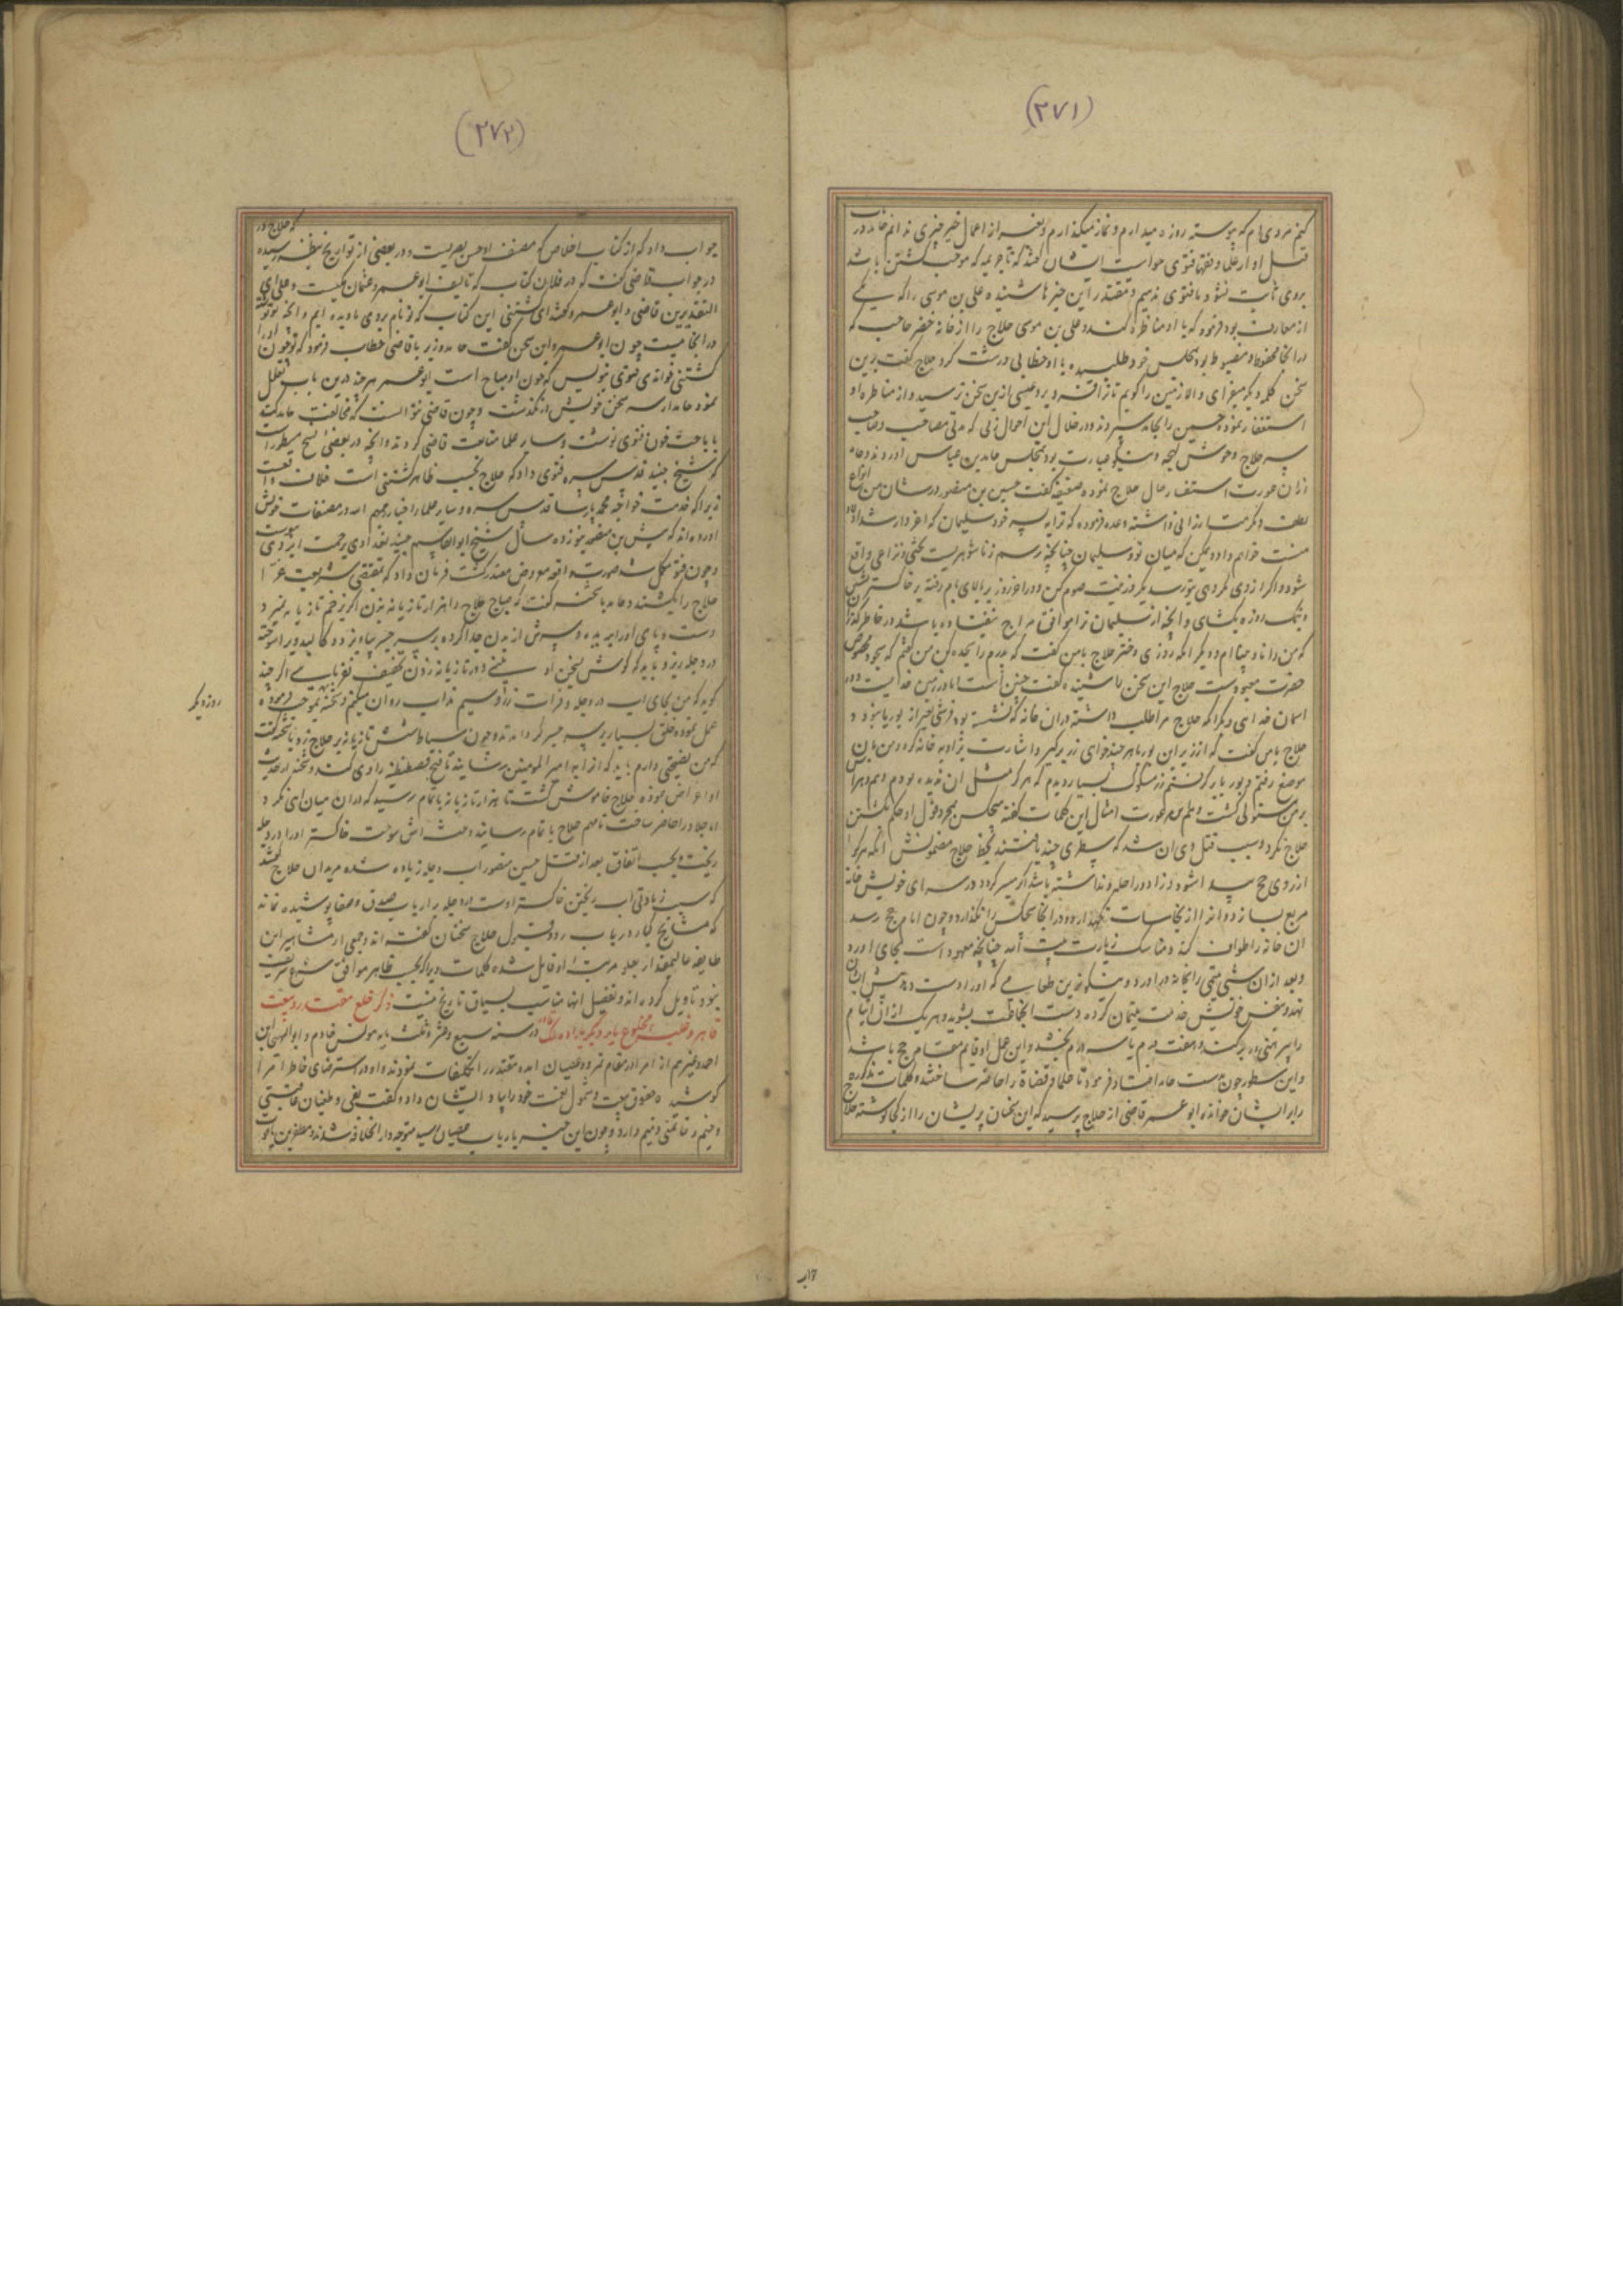 (۲۷۱)
کنم مردی ام که پیوسته روزه میدارم و نماز میگذارم و بغیر از اعمال خیر چیزی ندانم حامد در
قتل او از علما و فقها فتوی خواست ایشان گفتند که تا جریمه که موجب کشتن باشد
بروی ثابت نشود ما فتوی ندهیم و مقتدر این خبر شنیده علی بن عیسی را که یکی
از معارف بود فرمود که با او مناظره کند و علی بن عیسی حلاج را از خانه نصر حاجب که
در انجا محفوظ و مضبوط بود بمجلس خود طلبیده با او خطابی درشت کرد حلاج گفت برین
سخن کلمه دیگر میفزای و الا زمین را گویم تا ترا فرو برد عیسی ازین سخن ترسید و از مناظره او
استعفا نموده حسین را بحامد سپردند و در خلال این احوال زنی که مدتی مصاحب و صاحب
سر حلاج و خوش لهجه و نیکو عبارت بود بمجلس حامد بن عباس اوردند و حامد
ازان عورت استفسار حال حلاج نموده ضعیفه گفت حسین بن منصور در شان من انواع
لطف و کرمت ارزانی داشته وعده فرموده که ترا به پسر خود سلیمان که اعز و ارشد اولاد
منست خواهم داد و ممکن که میان تو و سلیمان چنانچه رسم زناشوهریست بحثی و نزاعی واقع
شود و اگر از وی مکروهی بتو رسد یکروز نیت صوم کن و در اخر روز بر بالای بام رفته بر خاکستر بنشین
و بنمک روزه بگشای و انچه از سلیمان ترا موافق مزاج نیفتاده باشد در خاطر گذران
که من دانا و بینا ام و دیگر انکه روزی دختر حلاج با من گفت که پدرم را سجده کن من گفتم که سجود مخصوص
حضرت معبودست حلاج این سخن را شنیده گفت چنین است اما در زمین خدائیست و در
اسمان خدائی دیگر انکه حلاج مرا طلب داشته در ان خانه که نشسته بود فرشی بغیر از بوریا نبود و
حلاج با من گفت که از زیر این بوریا هر چند خواهی زر بر گیر و اشارت بزاویه خانه کرد و من بان
موضع رفتم و بوریا بر گرفتم زر مسکوک بسیار دیدم که هرگز مثل ان ندیده بودم و هم و هراس
بر من مستولی گشت و هر چند عورت امثال این کلمات گفته هیچکس بمجرد قول او حکم بکشتن
حلاج نکرد و سبب قتل وی ان شد که سطری چند یافتند بخط حلاج مضمونش انکه هر کرا
ارزوی حج پیدا شود و زاد و راحله نداشته باشد اگر میسر گردد در سرای خویش خانه
مربع بسازد و انرا از نجاسات نگهدارد و در انجا هیچکس را نگذارد و چون ایام حج رسد
ان خانه را طواف کند و مناسک زیارت بیت الله چنانچه معهود است بجای اورد
و بعد ازان سی یتیم را بخانه دراورد و نیکوترین طعامی که او را دست دهد پیش ایشان
نهد و بنفس خویش خدمت یتیمان کرده دست انجماعت بشوید و هر یک ازان ایتام
را پیراهنی در بر کند و هفت درم یا سه درم بخشد و این عمل او قایم مقام حج باشد
و این سطور چون بدست حامد افتاد فرمود تا علما و قضاة را حاضر ساختند و کلمات مذکوره
را بر ایشان خوانده ابو عمر قاضی از حلاج پرسید که این سخنان پریشان را از کجا نوشته حلاج
۱۷ب
(۲۷۲)
که حلاج در
جواب داد که از کتاب اخلاص که مصنف او حسن بصریست و در بعضی از تواریخ بنظر رسیده
در جواب قاضی گفت که در فلان کتاب که تالیف ابو عمر و عثمان مکیست و علی ای
التقدیرین قاضی ابو عمرو گفت ای کشتنی این کتاب که تو نام بردی ما دیده ایم و انچه تو گوئی
در انجا نیست چون ابو عمرو این سخن گفت حامد وزیر با قاضی خطاب فرمود که تو چون او را
کشتنی خواندی فتوی بنویس که خون او مباح است ابو عمر هر چند درین باب تعلل
نمود حامد از سر سخن خویش در نگذشت و چون قاضی نتوانست که مخالفت حامد کند
باباحت خون فتوی نوشت و سایر علما متابعت قاضی کردند و انچه در بعضی نسخ مسطور است
که شیخ جنید قدس سره فتوی داد که حلاج بحسب ظاهر کشتنی است خلاف واقعست
زیرا که خدمت خواجه محمد پارسا قدس سره و سایر علماء اخبار رحمهم الله در مصنفات خویش
اورده اند که پیش بن منصور بنوزده سال شیخ ابو القاسم جنید بغدادی برحمت ایزدی پیوست
و چون فتوی مکمل شد صورت واقعه معروض مقتدر گشت فرمان داد که بمقتضی شریعت غرا
حلاج را بکشند و حامد با شحنه گفت که صباح حلاج را هزار تازیانه بزن اگر از زخم تازیانه نمیرد
دست و پای او را بریده و سرش از بدن جدا کرده بر سر جسر بیاویز و کالبد ویرا سوخته
در دجله ریز و باید که گوش بسخن او نکنی و در تازیانه زدن تخفیف نفرمائی اگر چند
گوید که من بجای اب در دجله و فرات زر و سیم مذاب روان میکنم و شحنه بموجب فرموده
روز دیگر
عمل نموده خلق بسیار بر سر جسر گرد امدند و چون سیاط شش تازیانه بر حلاج زد با شحنه گفت
که من نصیحتی دارم باید که انرا به امیر المومنین رسانید تا فتح قسطنطنیه را وی کند و شحنه از حدیث
او اعراض نموده حلاج خاموش گشت تا هزار تازیانه باتمام رسید که در ان میان اهی نکرد
انگاه جلاد را حاضر ساخت تا مهم حلاج باتمام رسانید و جثه اش سوخت خاکستر او را در دجله
ریخت و بحسب اتفاق بعد از قتل حسین منصور اب دجله زیاده شده مریدان حلاج گفتند
که سبب زیادتی اب ریختن خاکستر اوست در دجله بر ارباب صدق و صفا پوشیده نماند
که مشایخ کبار در باب رد و قبول حلاج سخنان گفته اند و جمعی از مشاهیر این
طایفه عالیمقدار بعلو مرتبت او قایل شده کلمات ویرا که بحسب ظاهر موافق شرع شریف
نبود تاویل کرده اند و تفصیل انها مناسب بسیاق تاریخ نیست ذکر خلع مقتدر و بیعت
قاهر و نصب مخلوع بار دیگر بپادشاهی در سنه سبع و عشر و ثلث مایه مونس خادم و ابو الهیجا بن
احمد و غیرهم از امرا در مقام تمرد و عصیان امده مقتدر را تکلیفات نمودند و او در استرضای خاطر امرا
کوشیده حقوق بیعت و شمول نعمت خود را بیاد ایشان داد و گفت بغی و طغیان عاقبتی
وخیم و خاتمتی ذمیم دارد و چون این خبر بارباب عصیان رسید متوجه دار الخلافه شدند و مظفر بن یاقوت